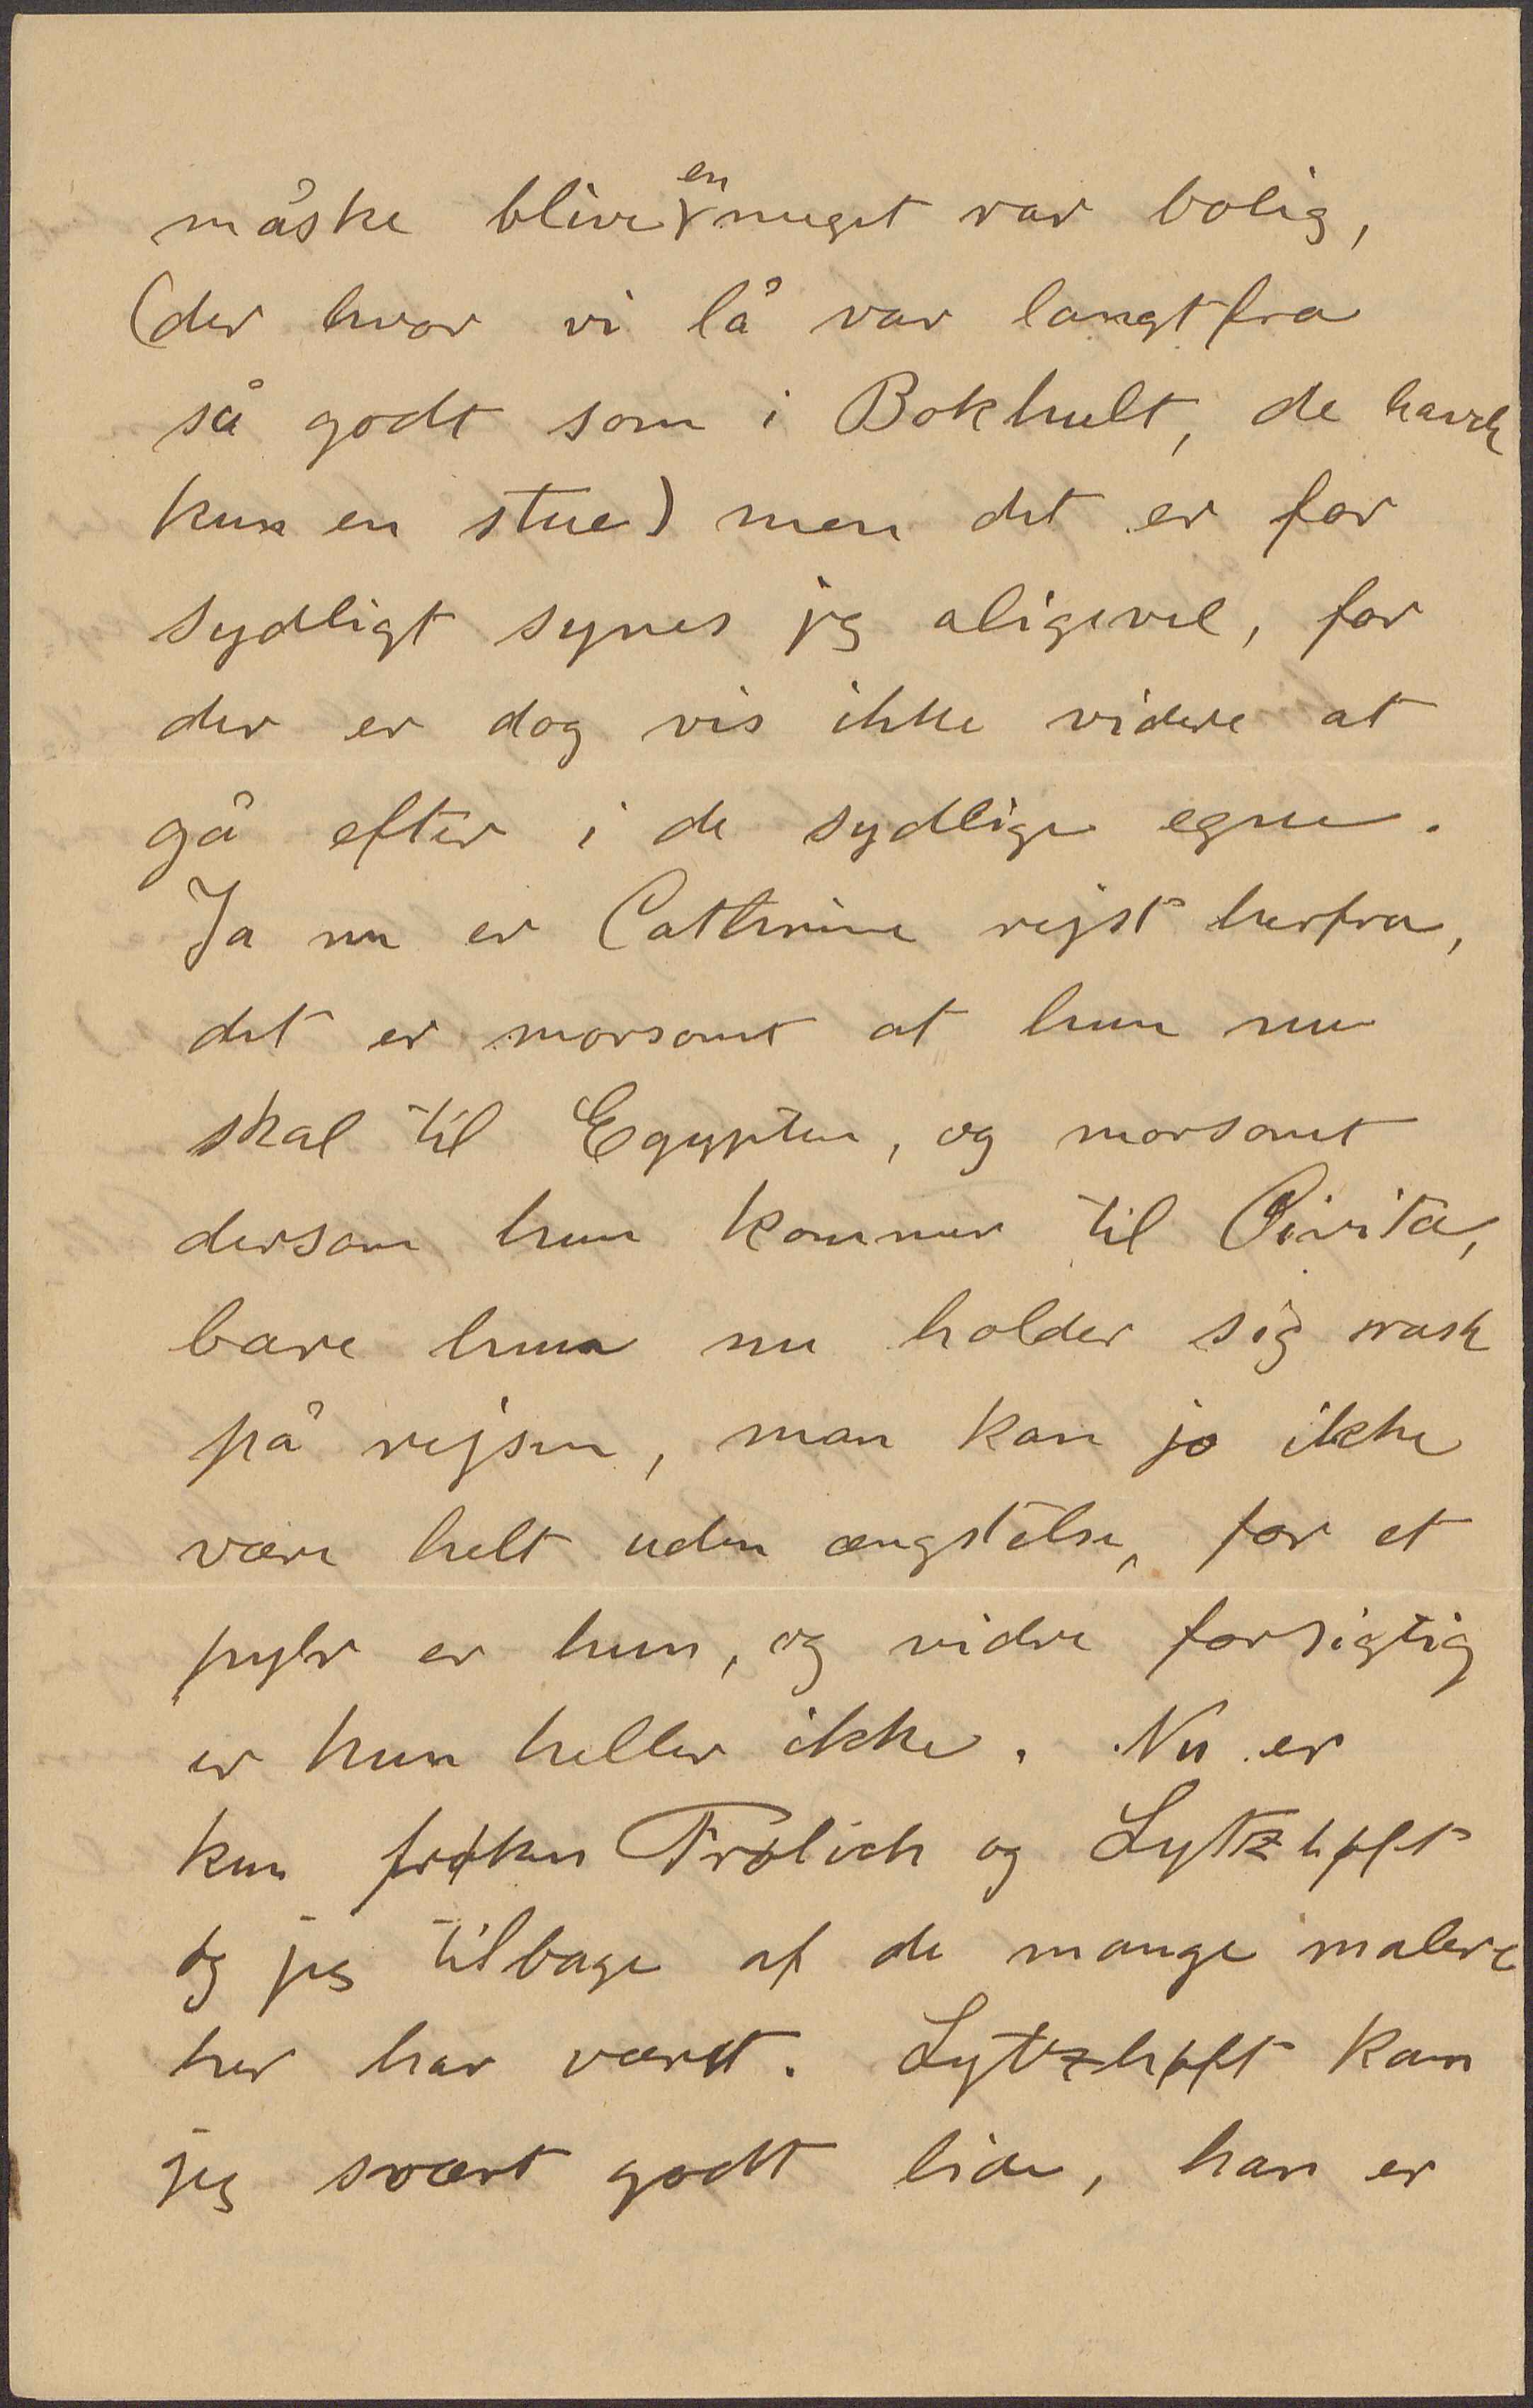 måske blive en meget rar bolig,
(der hvor vi lå var langtfra
så godt som i Bokhult, de havde
kun en stue) men det er for
sydligt synes jeg aligevel, for
der er dog vis ikke videre at
gå efter i de sydlige egne.
Ja nu er Cathrine rejst herfra,
det er morsomt at hun nu
skal til Egypten, og morsomt
dersom hun kommer til Civita,
bare hun nu holder sig rask
på rejsen, man kan jo ikke
være helt uden ængstelse, for et
pylr er hun, og vidre forsigtig
er hun heller ikke. Nu er
kun frøken Frølich og Lytzhøft
og jeg tilbage af de mange malere
her har været. Lytzhøft kan
jeg svært godt lide, han er